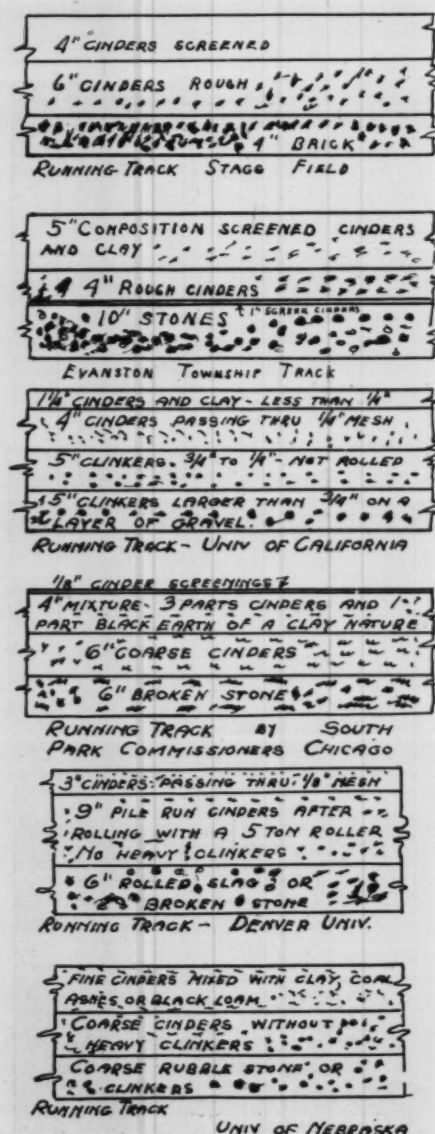 4" CINDERS SCREENED
6" CINDERS ROUGH
4" BRICK
RUNNING TRACK STAGG FIELD
5" COMPOSITION SCREENED CINDERS
AND CLAY
4" ROUGH CINDERS
10" STONES & 1" SCREEN CINDERS
EVANSTON TOWNSHIP TRACK
1¼" CINDERS AND CLAY - LESS THAN ¼"
4" CINDERS PASSING THRU ¼" MESH
5" CLINKERS. ¾" TO ¼" - NOT ROLLED
5" CLINKERS LARGER THAN ¾" ON A
LAYER OF GRAVEL.
RUNNING TRACK - UNIV OF CALIFORNIA
⅛" CINDER SCREENINGS
4" MIXTURE - 3 PARTS CINDERS AND 1
PART BLACK EARTH OF A CLAY NATURE
6" COARSE CINDERS
6" BROKEN STONE
RUNNING TRACK BY SOUTH
PARK COMMISSIONERS CHICAGO
3" CINDERS PASSING THRU ⅛" MESH
9" PILE RUN CINDERS AFTER
ROLLING WITH A 5 TON ROLLER
NO HEAVY CLINKERS
6" ROLLED SLAG OR
BROKEN STONE
RUNNING TRACK - DENVER UNIV.
FINE CINDERS MIXED WITH CLAY, COAL
ASHES OR BLACK LOAM
COARSE CINDERS WITHOUT
HEAVY CLINKERS
COARSE RUBBLE STONE OR
CLINKERS
RUNNING TRACK
UNIV OF NEBRASKA